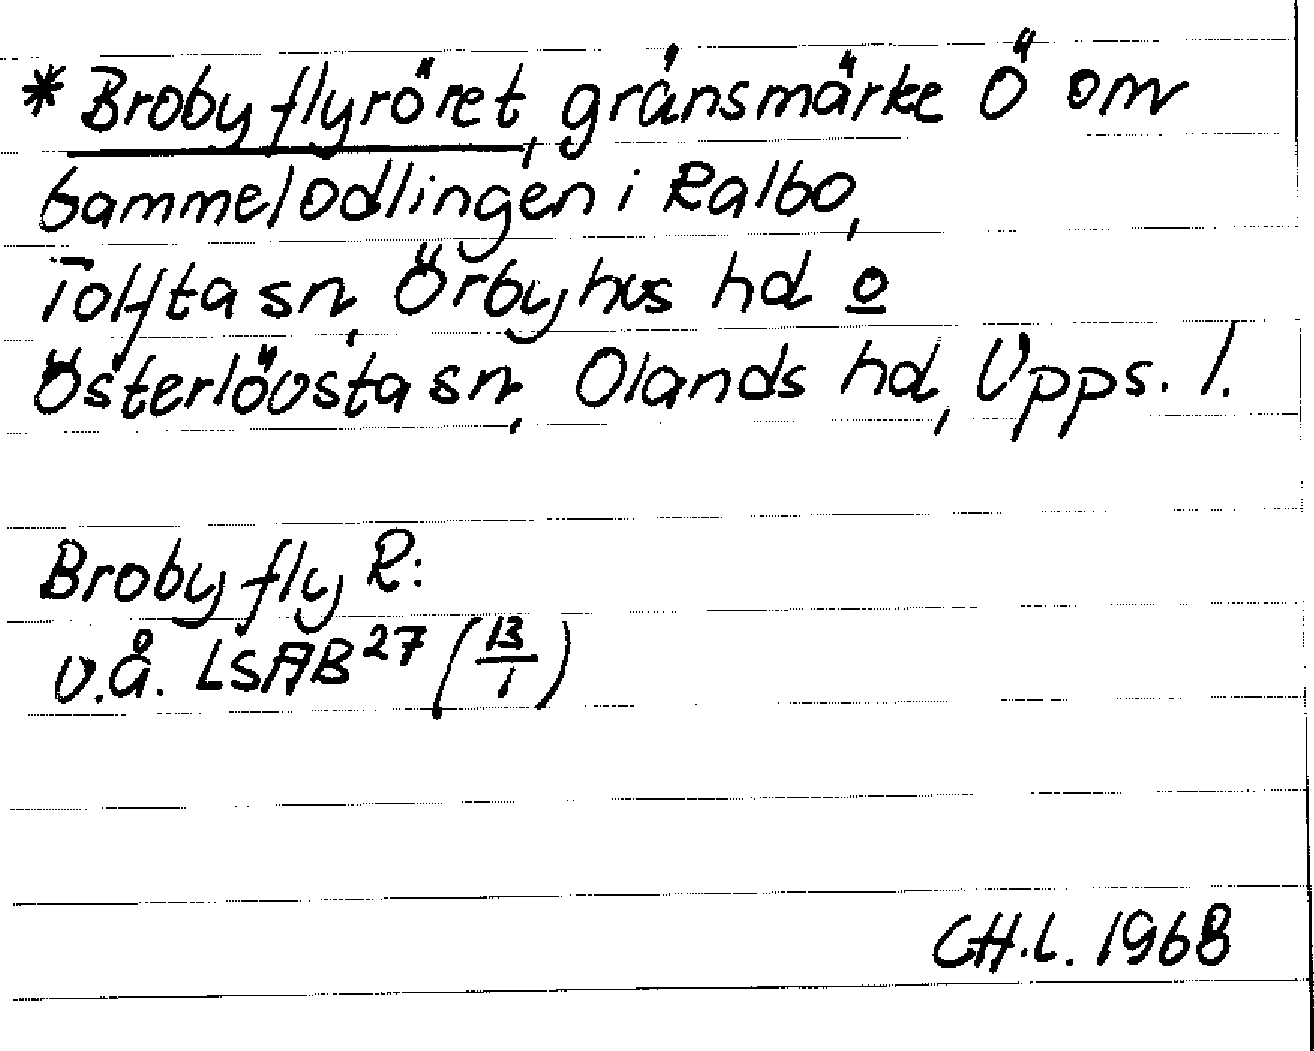 * Brobyflyröret, gränsmärke Ö om
Gammelodlingen i Ralbo,
Tolfta sn, Örbyhus hd o
Österlövsta sn, Olands hd, Upps. l.
Broby fly R:
u.å. LSAB 27 (13/1)
CH.L. 1968